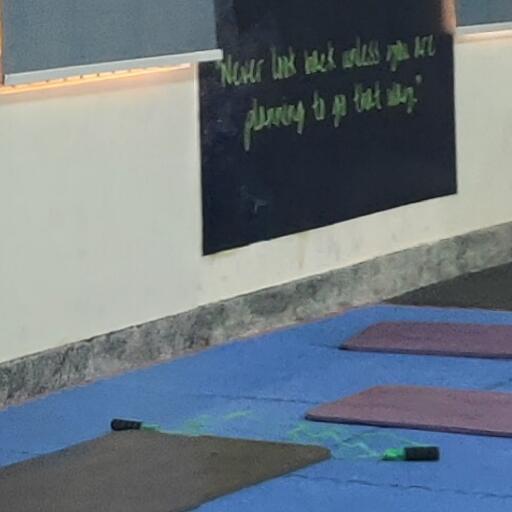 "Never look back unless you are
planning to go that way."